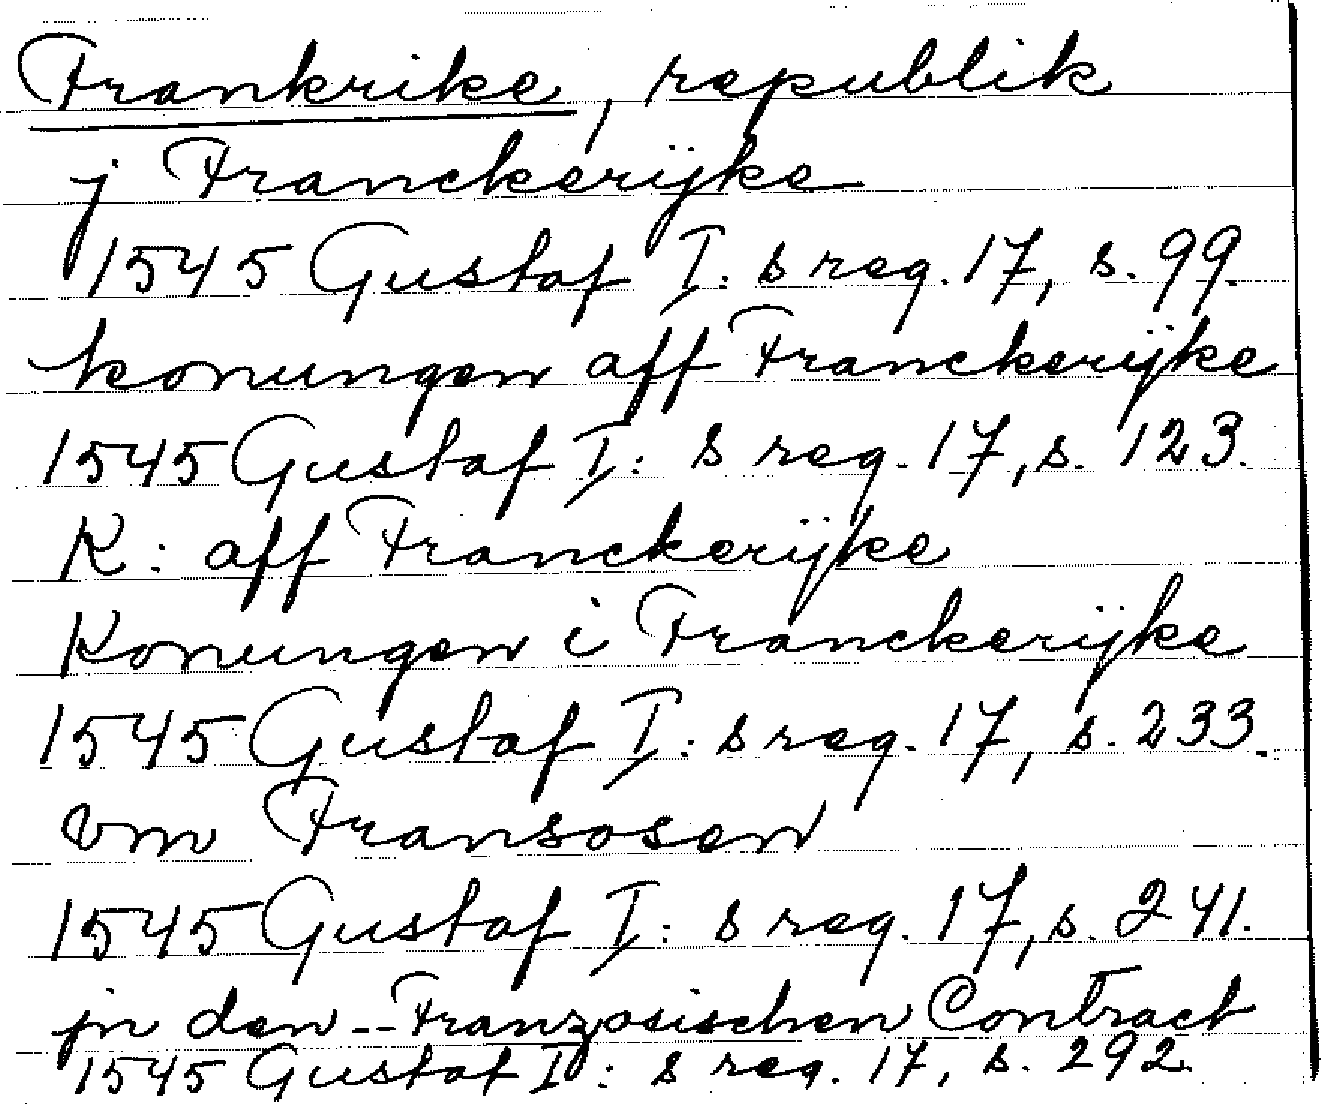 Frankrike, republik
j Franckerijke
1545 Gustaf I: s reg. 17, s. 99.
konungen aff Franckerijke
1545 Gustaf I: s reg. 17, s. 123.
K: aff Franckerijke
Konungen i Franckerijke
1545 Gustaf I: s reg. 17, s. 233.
Vm Fransosen
1545 Gustaf I: s reg. 17, s. 241.
jn den -- Franzosischen Contract
1545 Gustaf I: s reg. 17, s. 292.